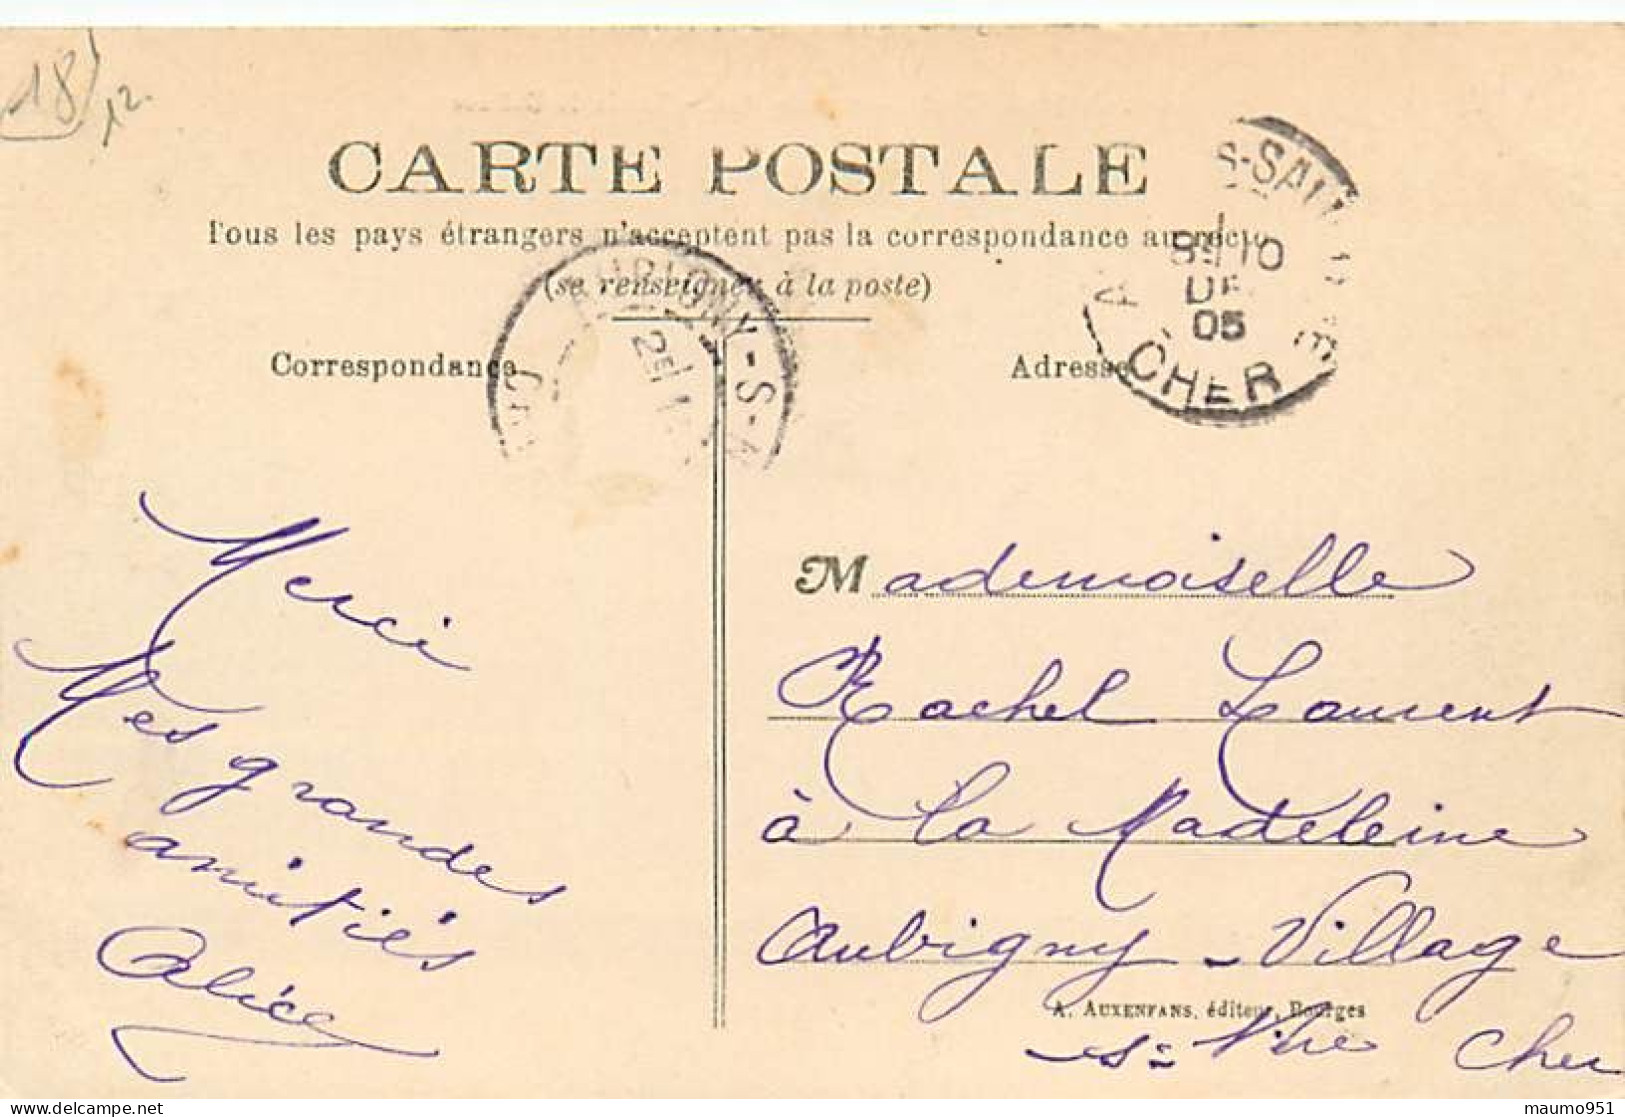 18
12.
CARTE POSTALE
Tous les pays étrangers n'acceptent pas la correspondance au recto
(se renseigner à la poste)
Correspondance
Adresse
S-SAN
10
DE
05
CHER
Merci
Mes grandes
amitiés
Alice
Mademoiselle
Rachel Laurent
à la Madeleine
Aubigny-Village
A. AUXENFANS, éditeur, Bourges
s= Nère Cher
maumo951